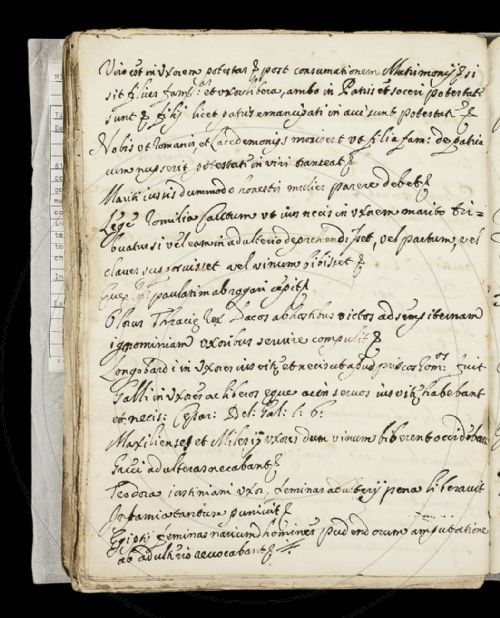 Viro est in uxorem potestas & post consumationem Matrimonij & si
sit filius fams: et uxor libera, ambo in Patris et soceri potestate
sunt & filij licet patris emancipati in aui sunt potestate &
Nobis ut Romanis et Lacedemonijs moris est ut filia fam: de patria
cum nupserit potestate in viri transeat &
Mariti iussis dummodo honestis mulier parere debet &
Lege Romulia cautum ut ius necis in uxorem marito tri=
buatur si vel eam in adulterio deprehendisset, vel partum, vel
claues supposuisset vel vinum bibisset &
paulatim abrogari cepit &
Thracię Rex Dacos ab hostibus victos ad sempiternam
ignominiam uxoribus servire compulit &
Longobardi in uxores ius vitę et necis ut apud priscos hom:os fuit
Galli in uxores ac liberos ęque ac in servos ius vitę habebant
et necis: Cęsar: Bel: Gal: l: 6:
Maxilienses et Milesij uxores dum vinum biberent occidebant
adulteras necabant &
Teodora iustiniani uxor, feminas adulterij pena liberauit
Infamia tantum puniuit &
Egiptij feminas narium homines pudendorum amputatione
ab adulterio revocabant &